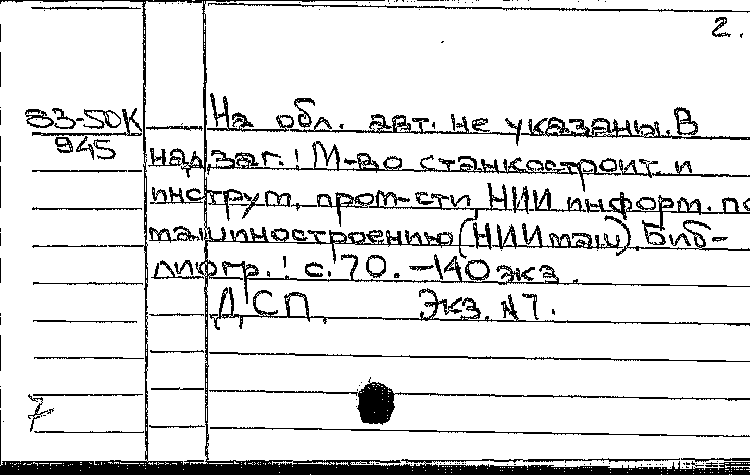 2.
83-50К
945
На обл. авт. не указаны. В
надзаг.: М-во станкостроит. и
инструм. пром-сти, НИИ информ. по
машиностроению (НИИмаш). Биб-
лиогр.: с. 70. - 140 экз.
ДСП. Экз. №7.
7